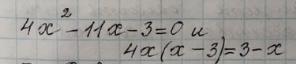 4x² - 11x - 3 = 0 и
4x(x - 3) = 3 - x